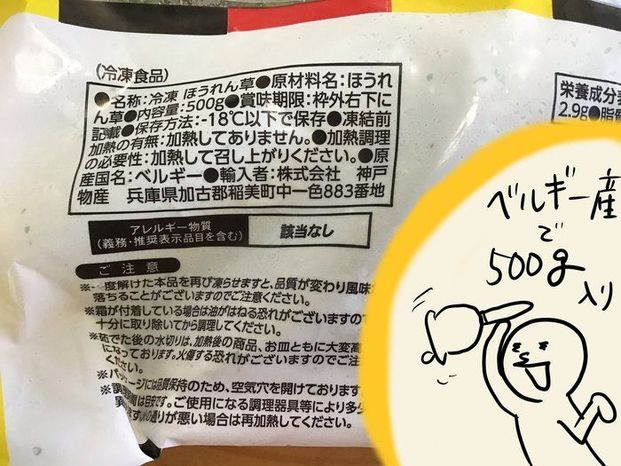 (冷凍食品)
●名称:冷凍 ほうれん草●原材料名:ほうれ
ん草●内容量:500g●賞味期限:枠外右下に
記載●保存方法:-18℃以下で保存●凍結前
加熱の有無:加熱してありません。●加熱調理
の必要性:加熱して召し上がりください。●原
産国名:ベルギー●輸入者:株式会社 神戸
物産 兵庫県加古郡稲美町中一色883番地
アレルギー物質
(義務・推奨表示品目を含む)
該当なし
ご注意
※一度解けた本品を再び凍らせますと、品質が変わり風味
落ちることがございますのでご注意ください。
※霜が付着している場合は油がはねる恐れがございますので
十分に取り除いてから調理してください。
※茹でた後の水切りは、加熱後の商品、お皿ともに大変高
になっております。火傷する恐れがございますのでご注
ください。
※パッケージには品質保持のため、空気穴を開けております
※調
目安です。ご使用になる調理器具等により多少
通りが悪い場合は再加熱してください。
栄養成分表
2.9g●脂
ベルギー産
で
500g
入り